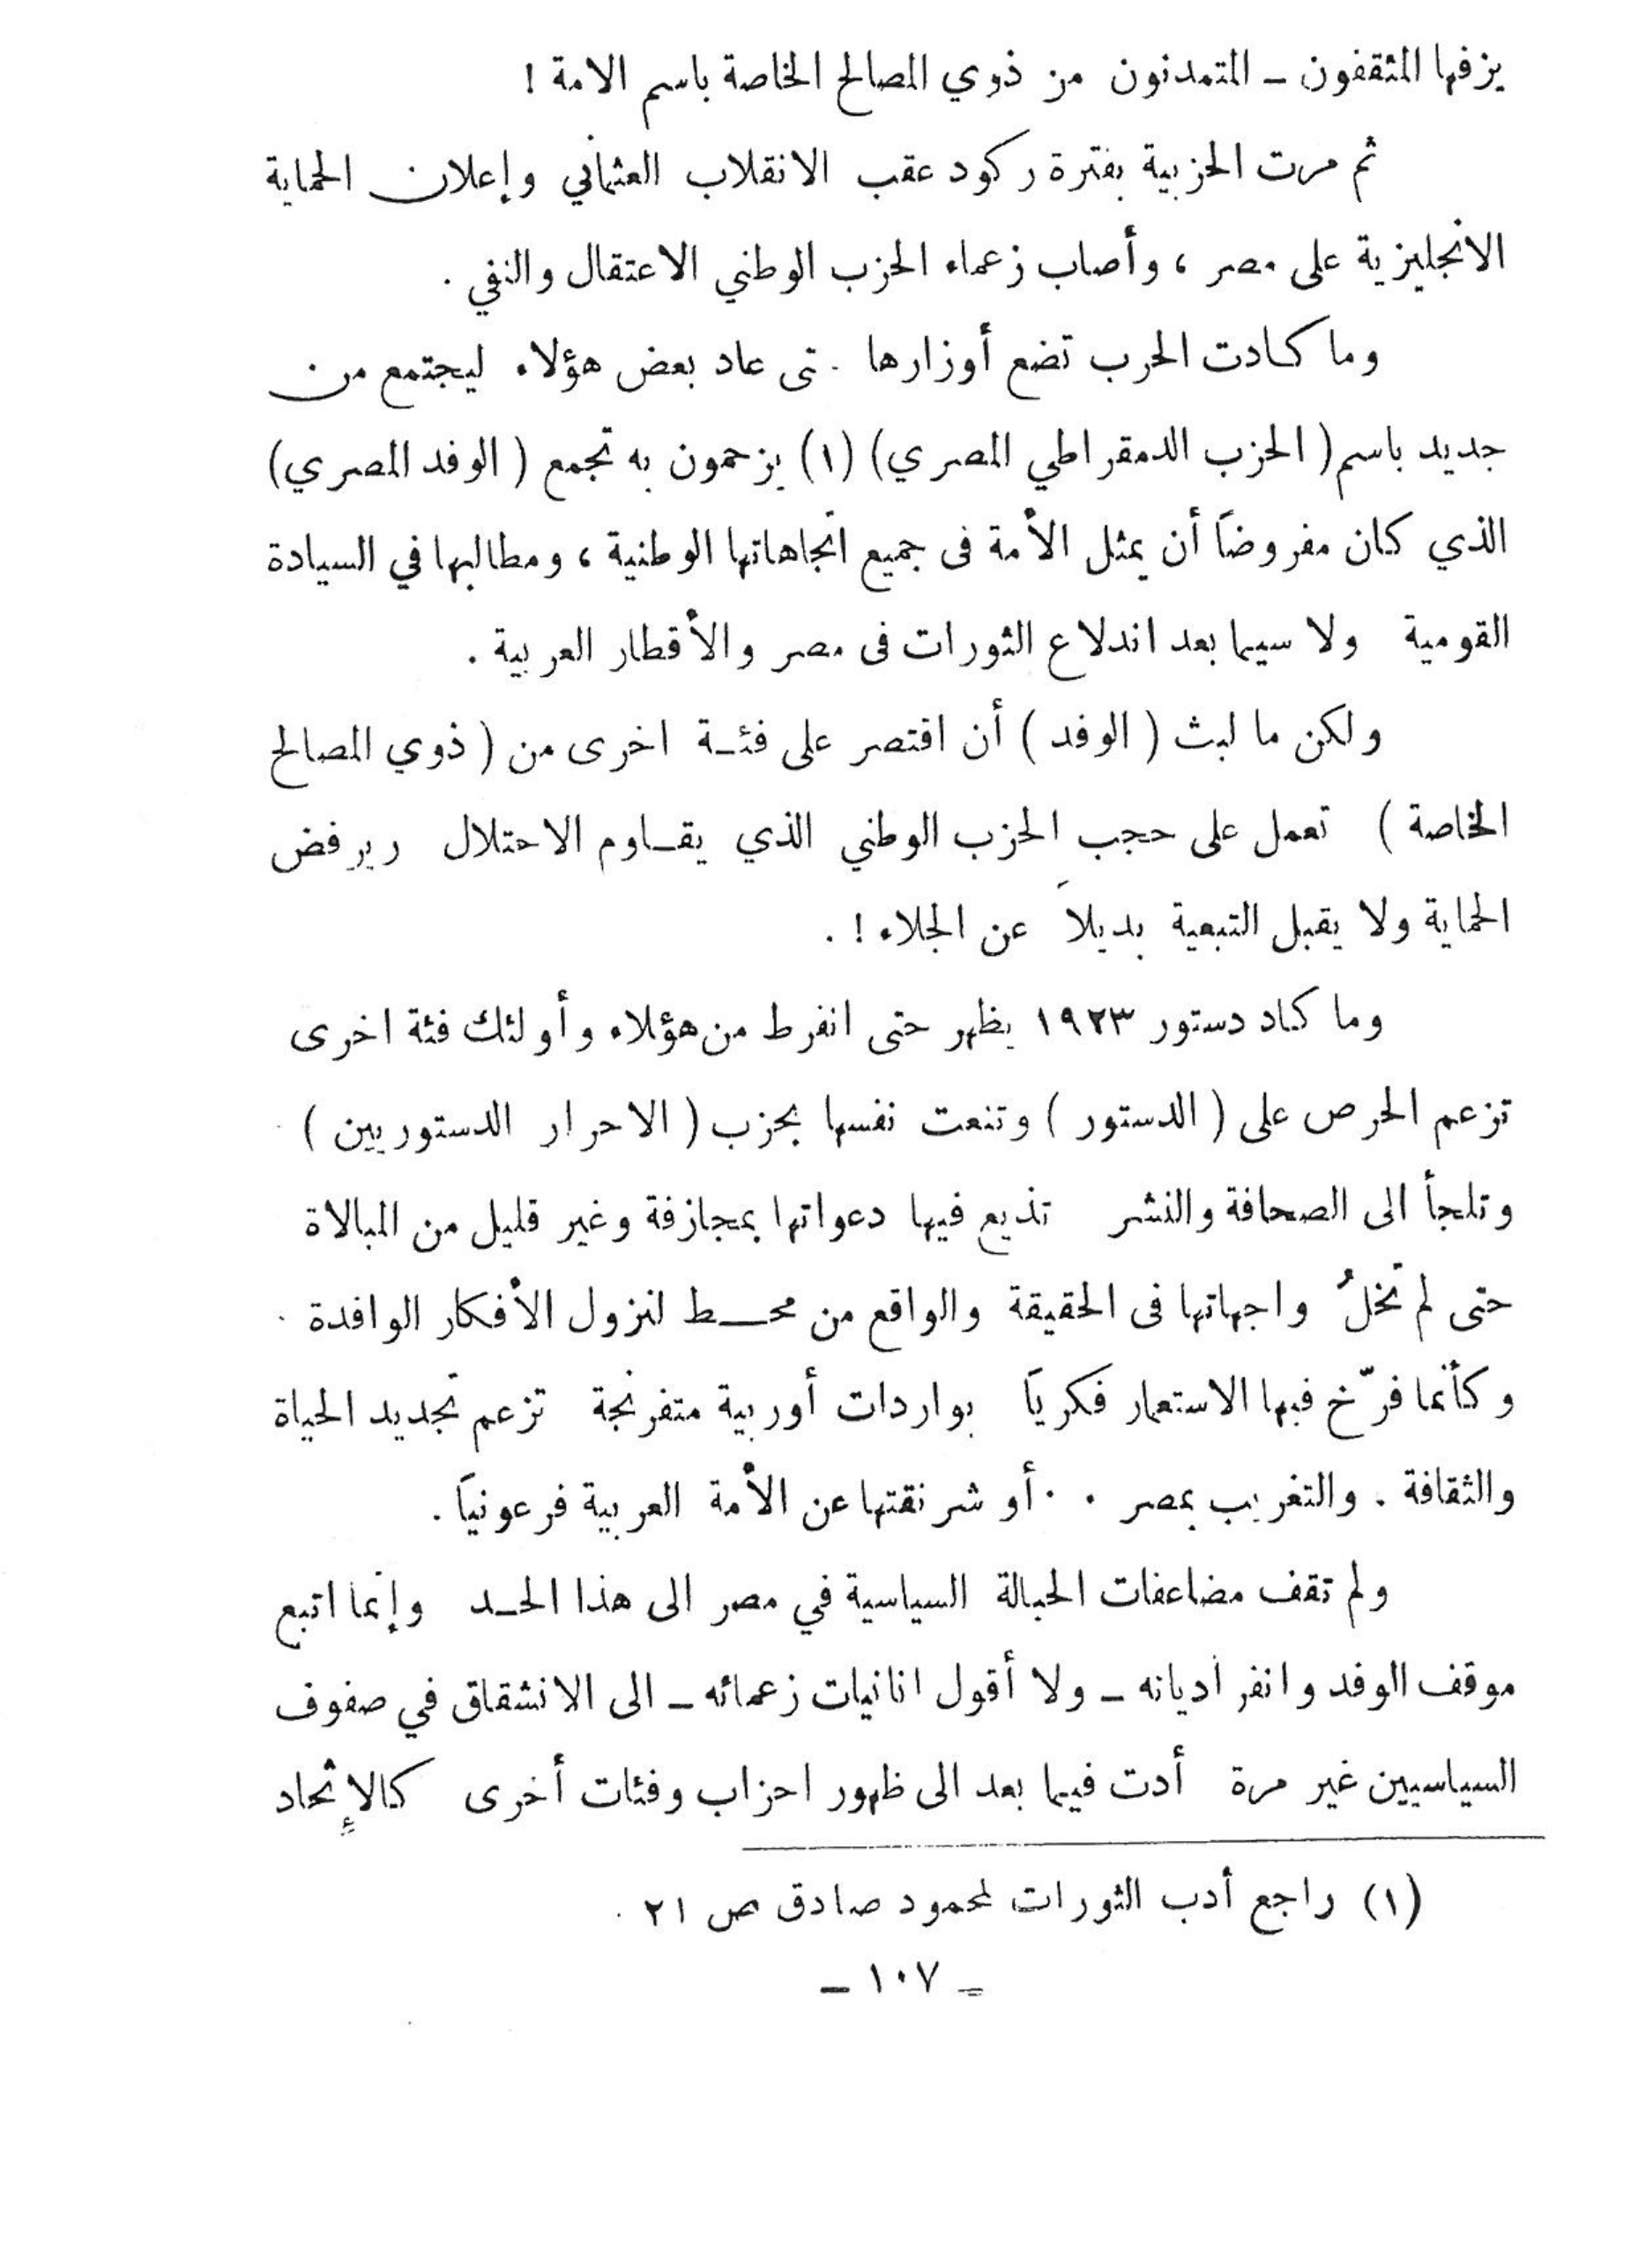 يزفها المثقفون – المتمدنون من ذوي المصالح الخاصة باسم الامة !
ثم مرت الحزبية بفترة ركود عقب الانقلاب العثماني وإعلان الحماية
الانجليزية على مصر ، وأصاب زعماء الحزب الوطني الاعتقال والنفي .
وما كادت الحرب تضع أوزارها .تى عاد بعض هؤلاء ليجتمع من
جديد باسم ( الحزب الدمقراطي المصري ) (١) يزحمون به تجمع ( الوفد المصري )
الذي كان مفروضاً أن يمثل الأمة فى جميع اتجاهاتها الوطنية ، ومطالبها في السيادة
القومية ولا سيما بعد اندلاع الثورات فى مصر والأقطار العربية .
ولكن ما لبث ( الوفد ) أن اقتصر على فئـة اخرى من ( ذوي المصالح
الخاصة ) تعمل على حجب الحزب الوطني الذي يقـاوم الاحتلال ويرفض
الحماية ولا يقبل التبعية بديلاً عن الجلاء ! .
وما كاد دستور ١٩٢٣ يظهر حتى انفرط من هؤلاء وأولئك فئة اخرى
تزعم الحرص على ( الدستور ) وتنعت نفسها بحزب ( الاحرار الدستوريين )
وتلجأ الى الصحافة والنشر تذيع فيها دعواتها بمجازفة وغير قليل من المبالاة
حتى لم تخلُ واجهاتها فى الحقيقة والواقع من محـط لنزول الأفكار الوافدة .
وكأنما فرّخ فيها الاستعمار فكرياً بواردات أوربية متفرنجة تزعم تجديد الحياة
والثقافة . والتغريب بمصر . . أو شرنقتها عن الأمة العربية فرعونياً .
ولم تقف مضاعفات الحبالة السياسية في مصر الى هذا الحـد وإنما اتبع
موقف الوفد وانفراديانه – ولا أقول انانيات زعمائه – الى الانشقاق في صفوف
السياسيين غير مرة أدت فيما بعد الى ظهور احزاب وفئات أخرى كالإتحاد
(١) راجع أدب الثورات لمحمود صادق ص ٢١ .
– ١٠٧ –